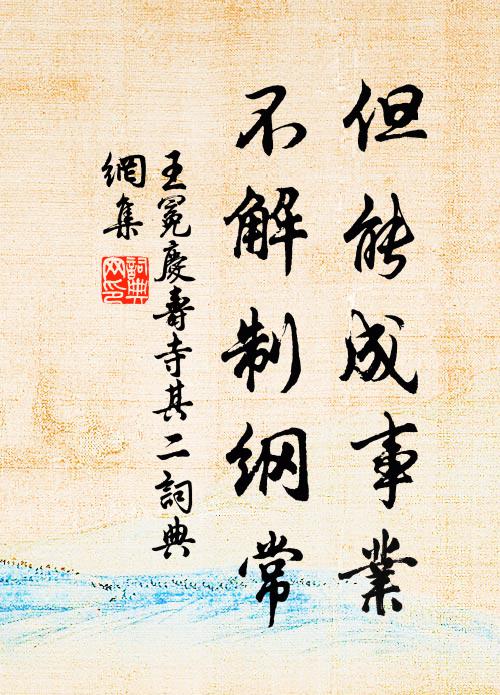 但能成事業
不解制綱常
王冕慶壽寺其二詞典
網集
詞典網印